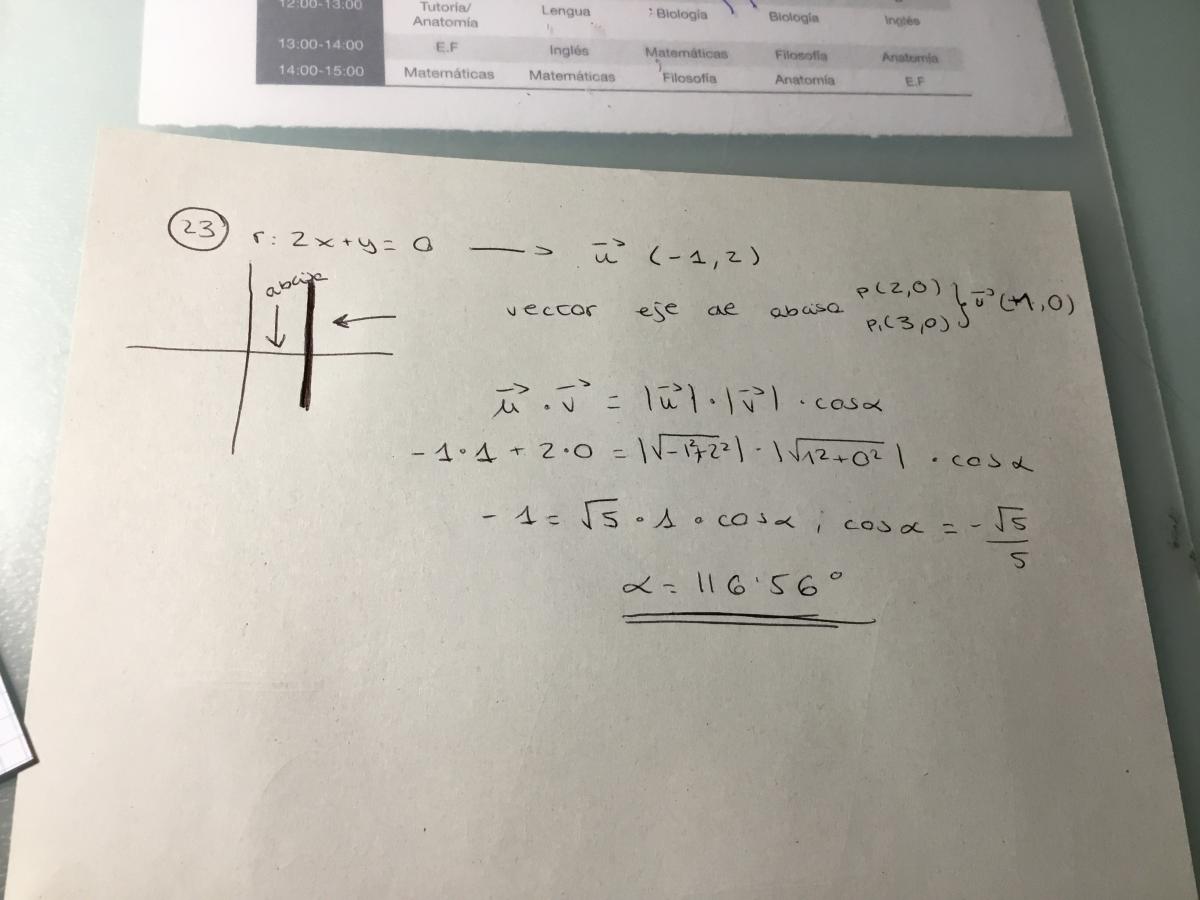 12:00-13:00 Tutoría/ Anatomía Lengua Biología Biología Inglés
13:00-14:00 E.F Inglés Matemáticas Filosofía Anatomía
14:00-15:00 Matemáticas Matemáticas Filosofía Anatomía E.F
23 r: 2x+y=0 → u⃗ (-1,2)
vector eje de abcisa P(2,0) P₁(3,0) } v⃗ (+1,0)
u⃗ · v⃗ = |u⃗| · |v⃗| · cos α
-1·1 + 2·0 = |√-1²+2²| · |√1²+0²| · cos α
-1 = √5 · 1 · cos α ; cos α = -√5/5
α = 116'56°